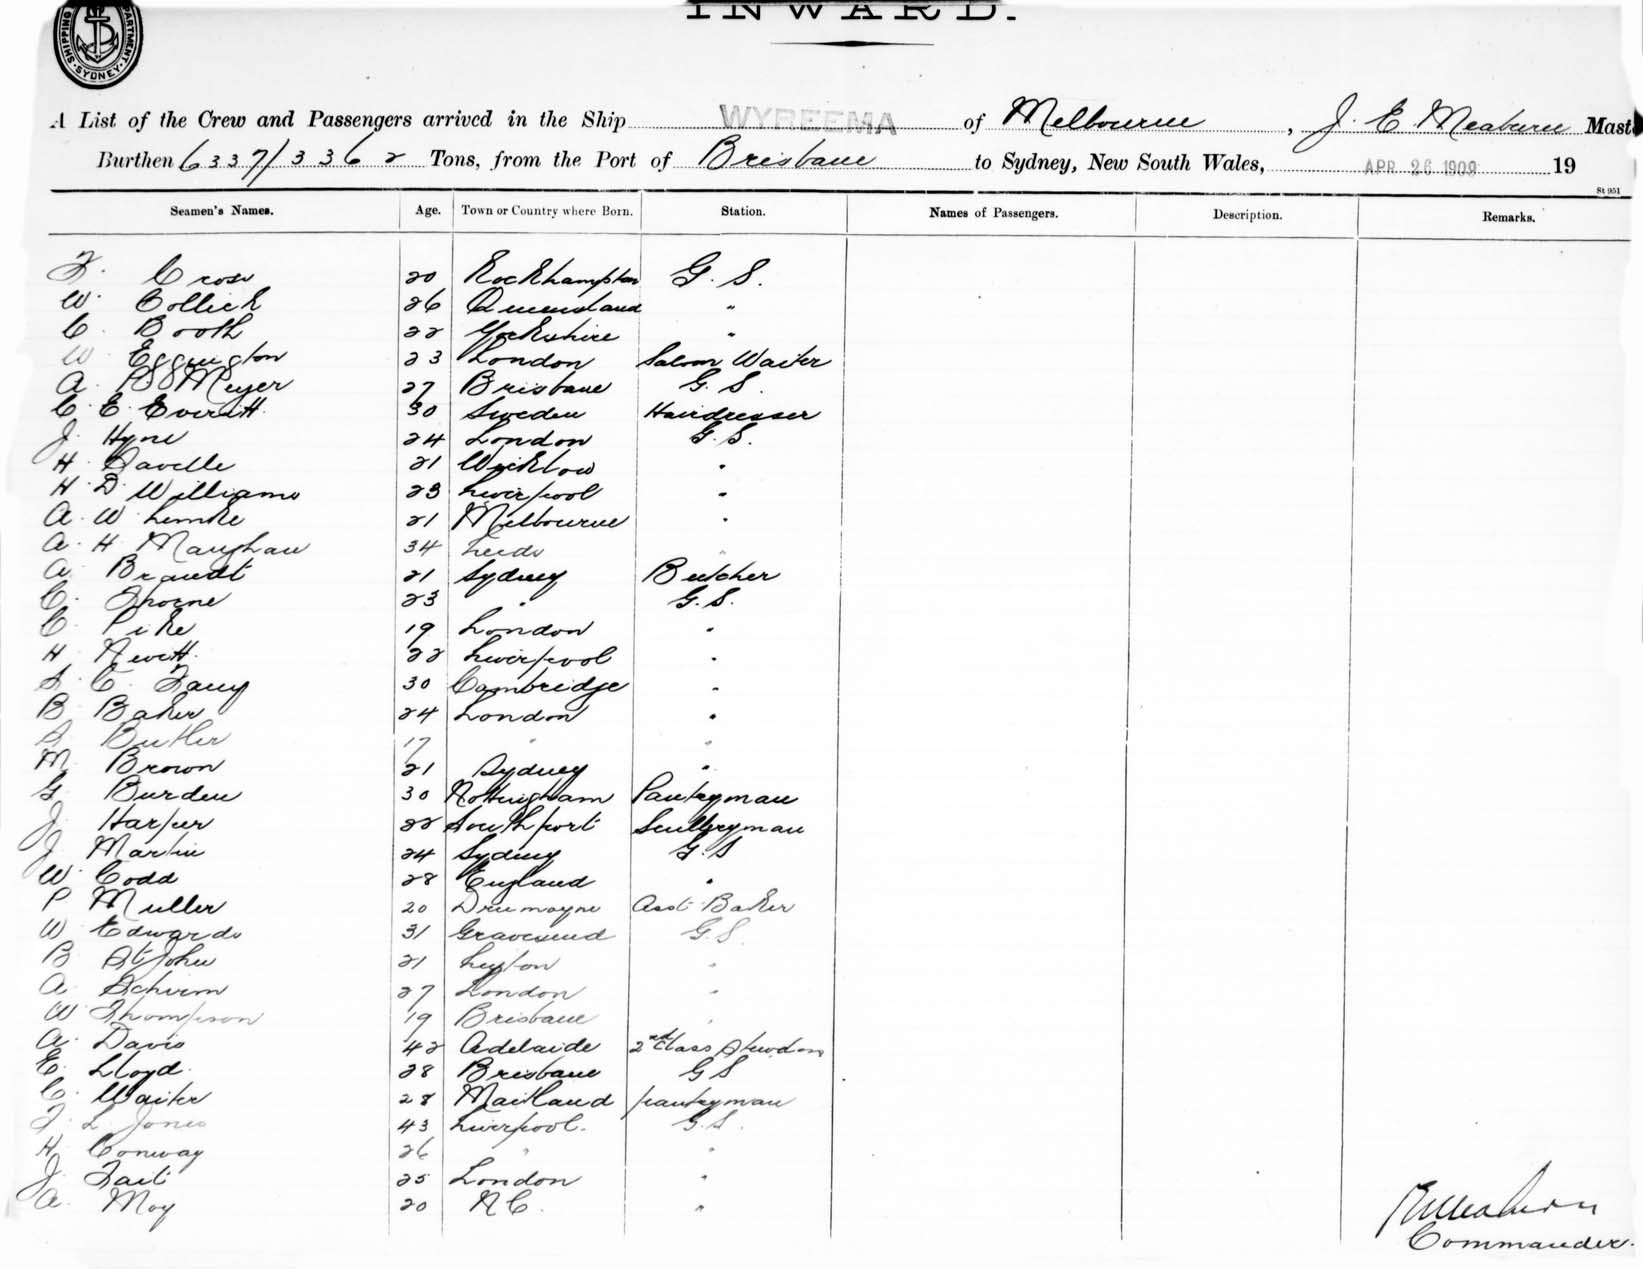 INWARD.
SHIPPING DEPARTMENT. SYDNEY.
A List of the Crew and Passengers arrived in the Ship WYREEMA of Melbourne, J. E Meaburn Mast
Burthen 6337/3362 Tons, from the Port of Brisbane to Sydney, New South Wales, APR 26 1909 19
St 951
Seamen's Names. Age. Town or Country where Born. Station. Names of Passengers. Description. Remarks.
F. Cross 20 Rockhampton G. S.
W. Collick 26 Queensland "
C. Booth 22 Yorkshire "
W Eggington 23 London Saloon Waiter
A. Meyer 27 Brisbane G. S.
C. E. Everitt 30 Sweden Hairdresser
J. Hyne 24 London G. S.
H. Savelle 21 Wicklow "
H. D. Williams 23 Liverpool "
A. W. Lemke 21 Melbourne "
A. H. Maughan 34 Leeds "
A. Brandt 21 Sydney Butcher
C. Thorne 23 " G. S.
C. Pike 19 London "
H. Nevitt 22 Liverpool "
S. C. 30 Cambridge "
B Baker 24 London "
S. Butler 17 " "
M. Brown 21 Sydney "
G. Burden 30 Nottingham Pantryman
J. Harper 22 Southport Sculleryman
J. Martin 24 Sydney G. S
W. Codd 28 England "
P Muller 20 Drumoyne Asst Baker
W Edwards 31 Gravesend G. S.
B. St John 21 Leyton "
A. Schirm 27 London "
W. Thompson 19 Brisbane "
A. Davis 42 Adelaide 2nd Class
E. Lloyd. 28 Brisbane G S
C. Waiter 28 Maitland pantryman
F. L. Jones 43 Liverpool. G. S.
H. Conway 26 " "
J. Tait 25 London "
A. Moy 20 N C. "
Commander.